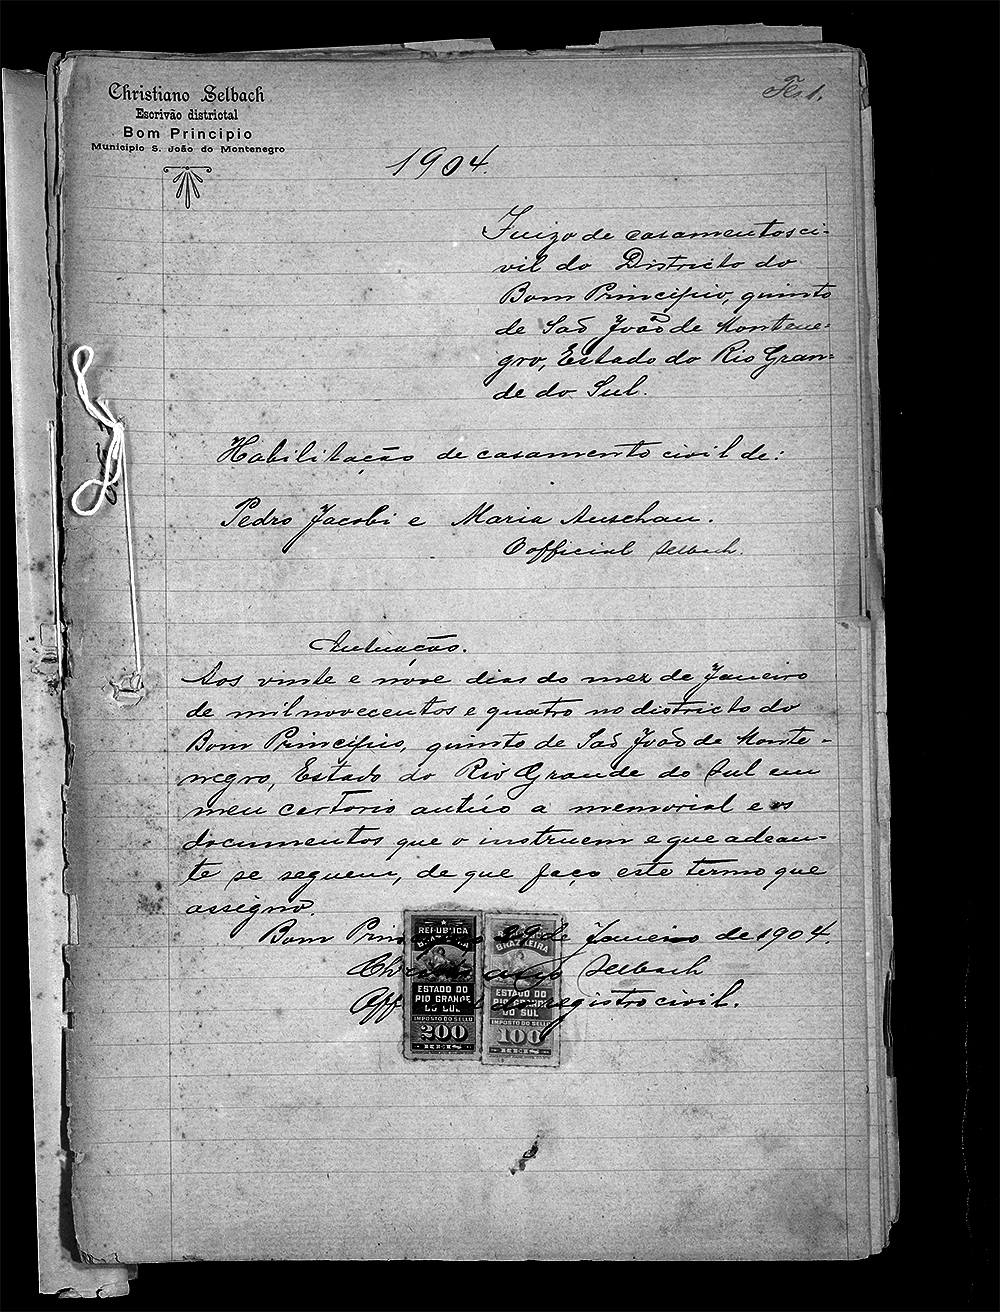 Christiano Selbach
Escrivão districtal
Bom Principio
Municipio S. João do Montenegro
Fls 1.
1904.
Juizo de casamentos ci-
vil do Districto do
Bom Principio, quinto
de São João de Montene-
gro, Estado do Rio Gran-
de do Sul.
Habilitação de casamento civil de:
Pedro Jacobi e Maria Auschau.
O official Selbach.
Autuação.
Aos vinte e nove dias do mez de Janeiro
de mil novecentos e quatro no districto do
Bom Principio, quinto de São João de Monte-
negro, Estado do Rio Grande do Sul em
meu cartorio autúo a memorial e os
documentos que o instruem e que adean-
te se seguem, de que faço este termo que
assigno.
Bom Principio 29 de Janeiro de 1904.
Christiano Selbach
Official do registro civil.
REPUBLICA
BRAZILEIRA
ESTADO DO
RIO GRANDE
DO SUL
IMPOSTO DO SELLO
200
REIS
BRAZILEIRA
ESTADO DO
RIO GRANDE
DO SUL
IMPOSTO DO SELLO
100
REIS